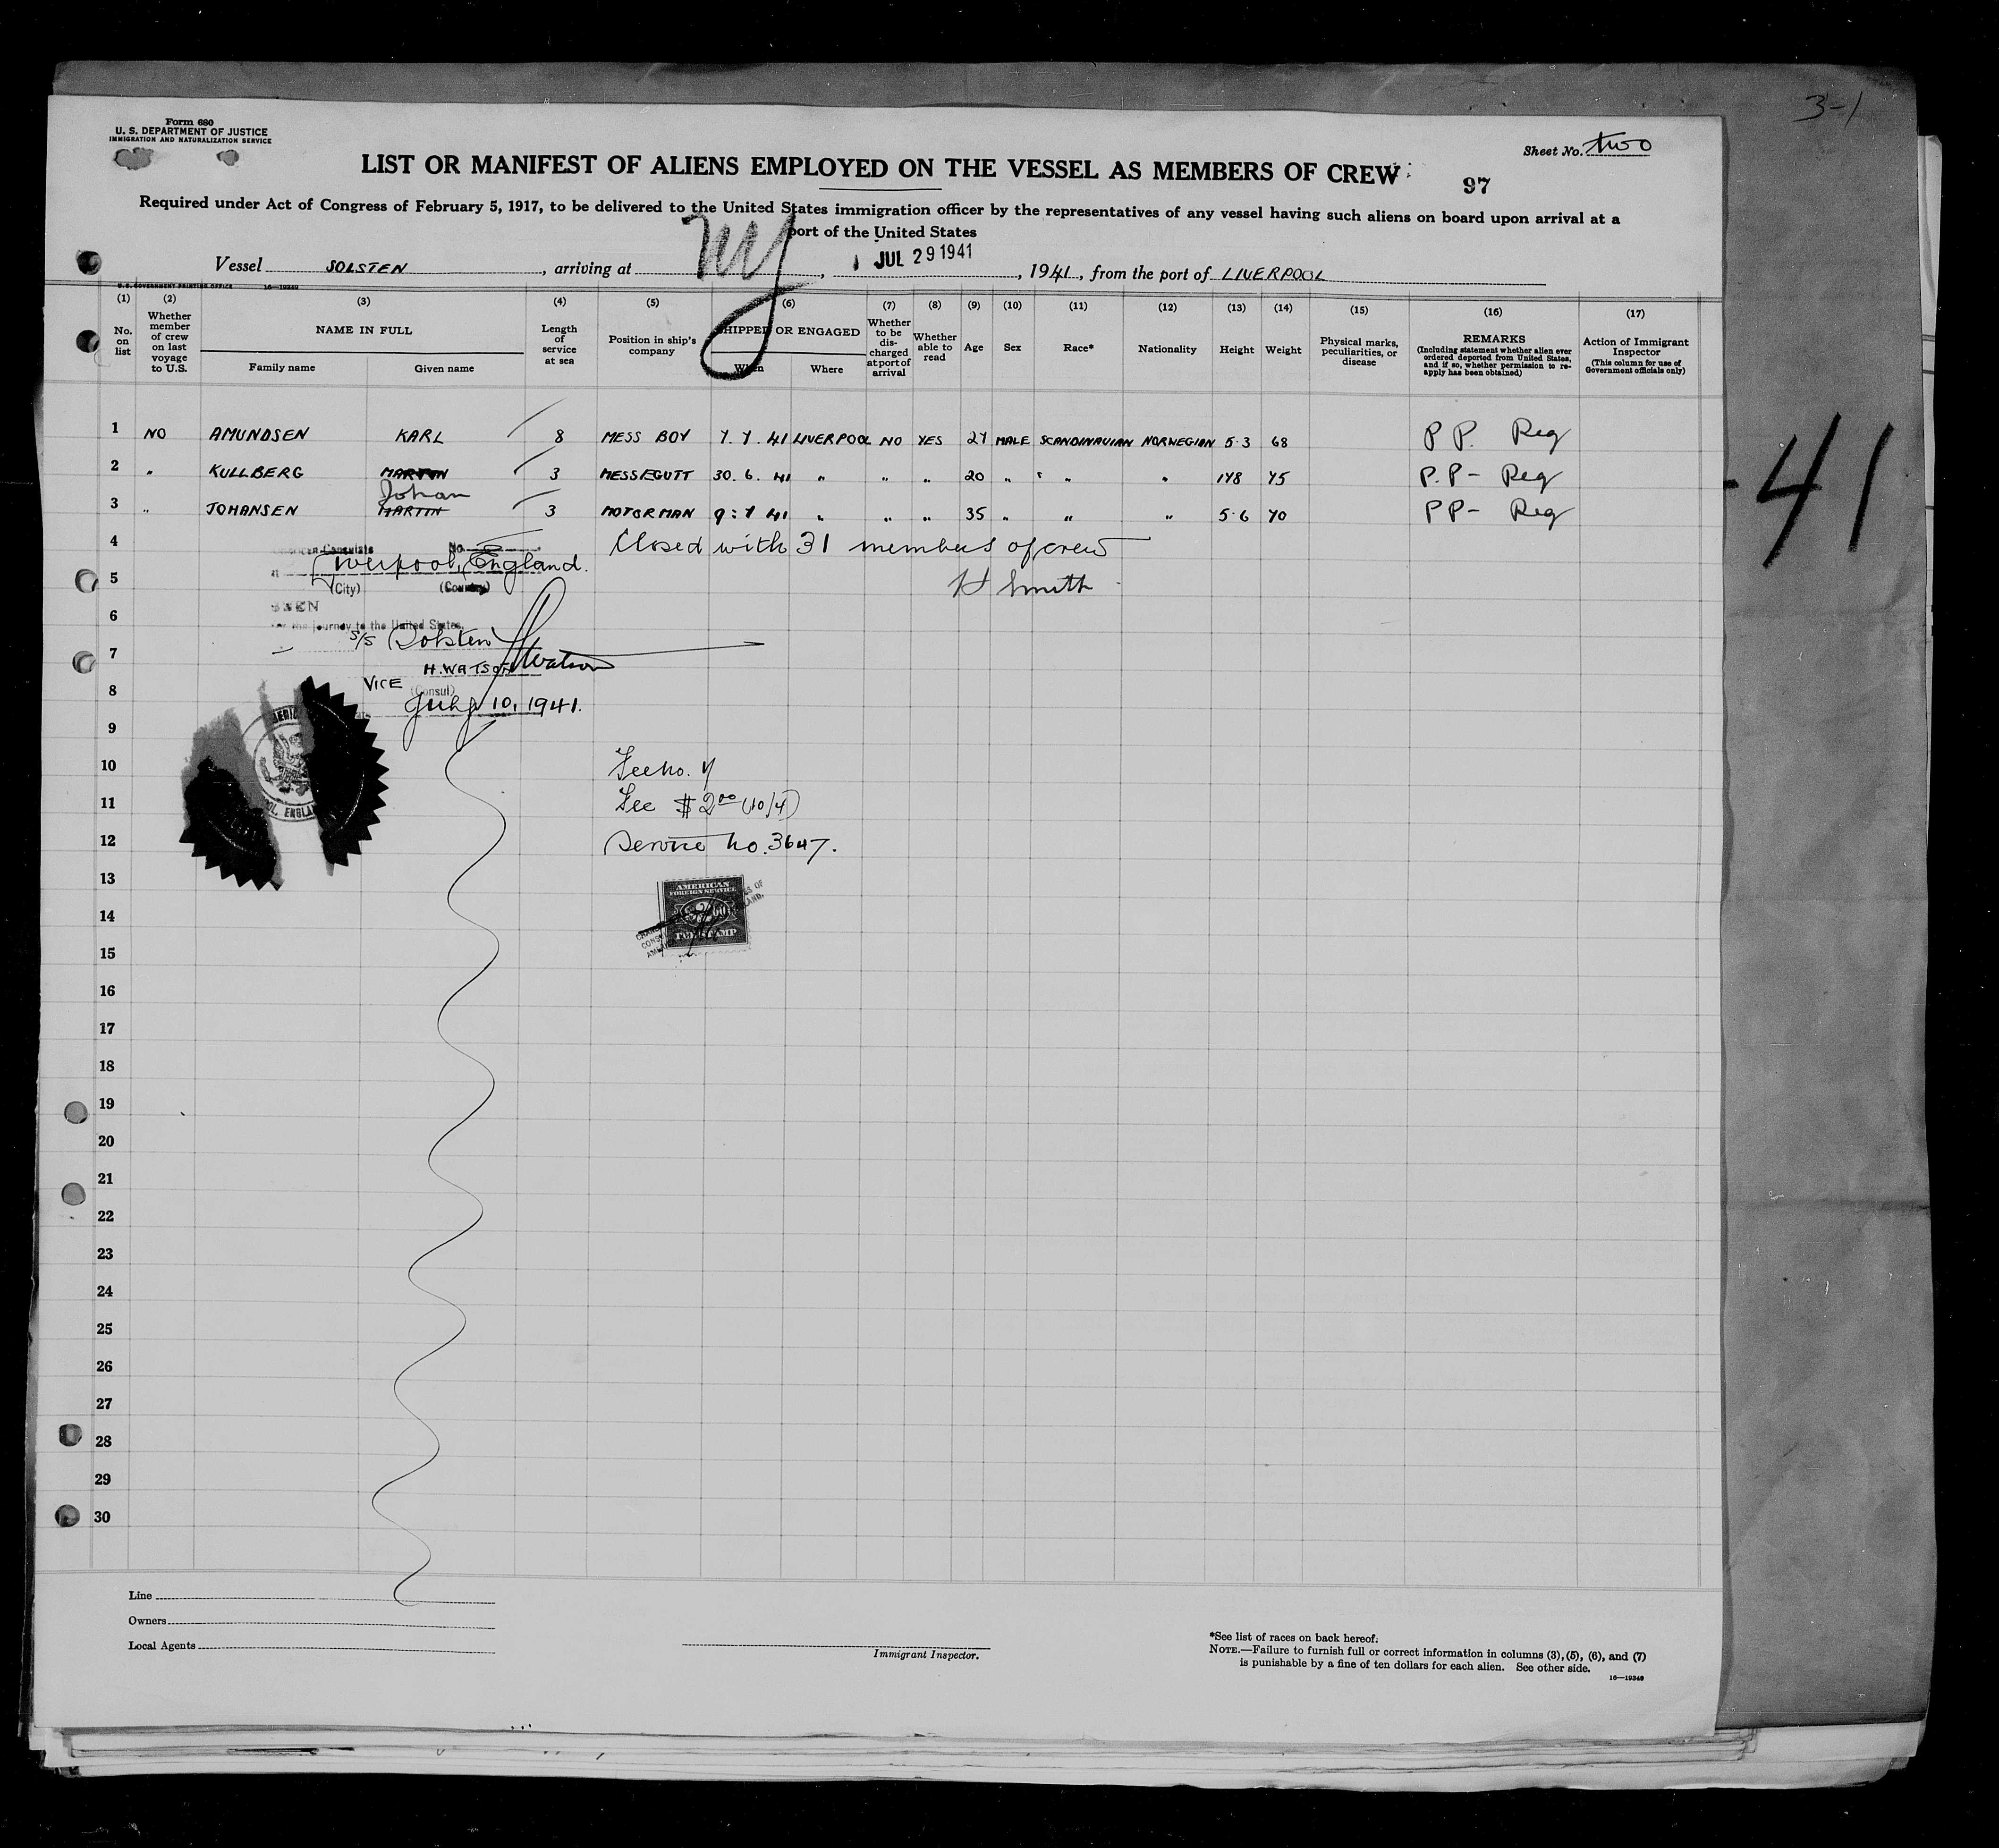 3-1
Form 680
U. S. DEPARTMENT OF JUSTICE
IMMIGRATION AND NATURALIZATION SERVICE
Sheet No. two
LIST OR MANIFEST OF ALIENS EMPLOYED ON THE VESSEL AS MEMBERS OF CREW
97
Required under Act of Congress of February 5, 1917, to be delivered to the United States immigration officer by the representatives of any vessel having such aliens on board upon arrival at a
port of the United States
Vessel SOLSTEN, arriving at NY, JUL 29 1941, 1941, from the port of LIVERPOOL
U.S. GOVERNMENT PRINTING OFFICE 16—19349
(1) (2) (3) (4) (5) (6) (7) (8) (9) (10) (11) (12) (13) (14) (15) (16) (17)
No. on list
Whether member of crew on last voyage to U.S.
NAME IN FULL
Family name Given name
Length of service at sea
Position in ship's company
SHIPPED OR ENGAGED
When Where
Whether to be discharged at port of arrival
Whether able to read
Age
Sex
Race*
Nationality
Height
Weight
Physical marks, peculiarities, or disease
REMARKS
(Including statement whether alien ever ordered deported from United States, and if so, whether permission to re-apply has been obtained)
Action of Immigrant Inspector
(This column for use of Government officials only)
1 NO AMUNDSEN KARL 8 MESS BOY 7. 7. 41 LIVERPOOL NO YES 27 MALE SCANDINAVIAN NORWEGIAN 5·3 68 PP. Reg
2 " KULLBERG MARTIN 3 MESSEGUTT 30. 6. 41 " " " 20 " " " 178 75 P.P- Reg
Johan
3 " JOHANSEN MARTIN 3 MOTORMAN 9: 7 41 " " " 35 " " " 5·6 70 PP- Reg
-41
4 Closed with 31 members of crew
American Consulate No.
at Liverpool, England.
5 H Smith
(City) (Country)
SEEN
6
For the journey to the United States
S/S Solsten
7
H. WATSON HWatson
8 VICE (Consul)
July 10, 1941.
9
10 Fee No. 7
11 Fee $2.00 (10/-)
12 Service No. 3647.
13
AMERICAN
FOREIGN SERVICE
14
FEE STAMP
15
16
17
18
19
20
21
22
23
24
25
26
27
28
29
30
Line
Owners
Local Agents
Immigrant Inspector.
*See list of races on back hereof.
NOTE.—Failure to furnish full or correct information in columns (3), (5), (6), and (7)
is punishable by a fine of ten dollars for each alien. See other side.
16—19349